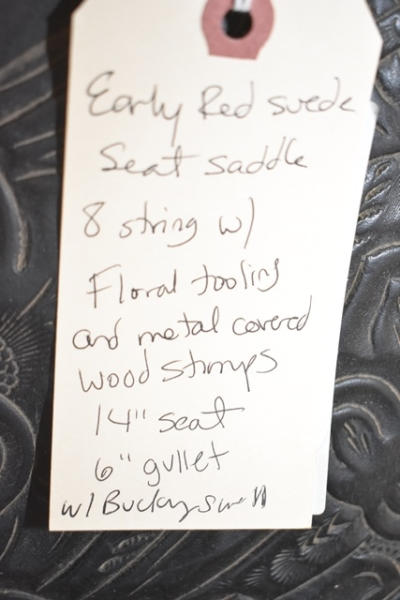 Early Red suede
Seat saddle
8 string w/
Floral tooling
and metal covered
wood stirrups
14" seat
6" gullet
w/ Bucking swell